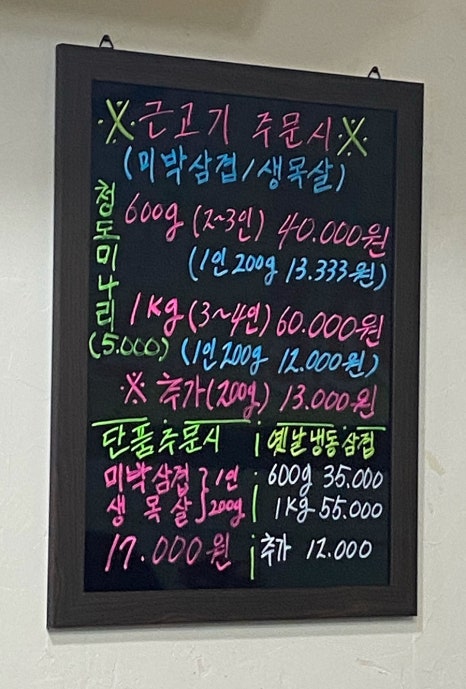 ※근고기 주문시※
(미박삼겹/생목살)
청도미나리
(5.000)
600g (2~3인) 40.000원
(1인 200g 13.333원)
1Kg (3~4인) 60.000원
(1인 200g 12.000원)
※ 추가(200g) 13.000원
단품주문시
미박삼겹 } 1인
생목살 } 200g
17.000원
옛날냉동삼겹
600g 35.000
1Kg 55.000
추가 12.000